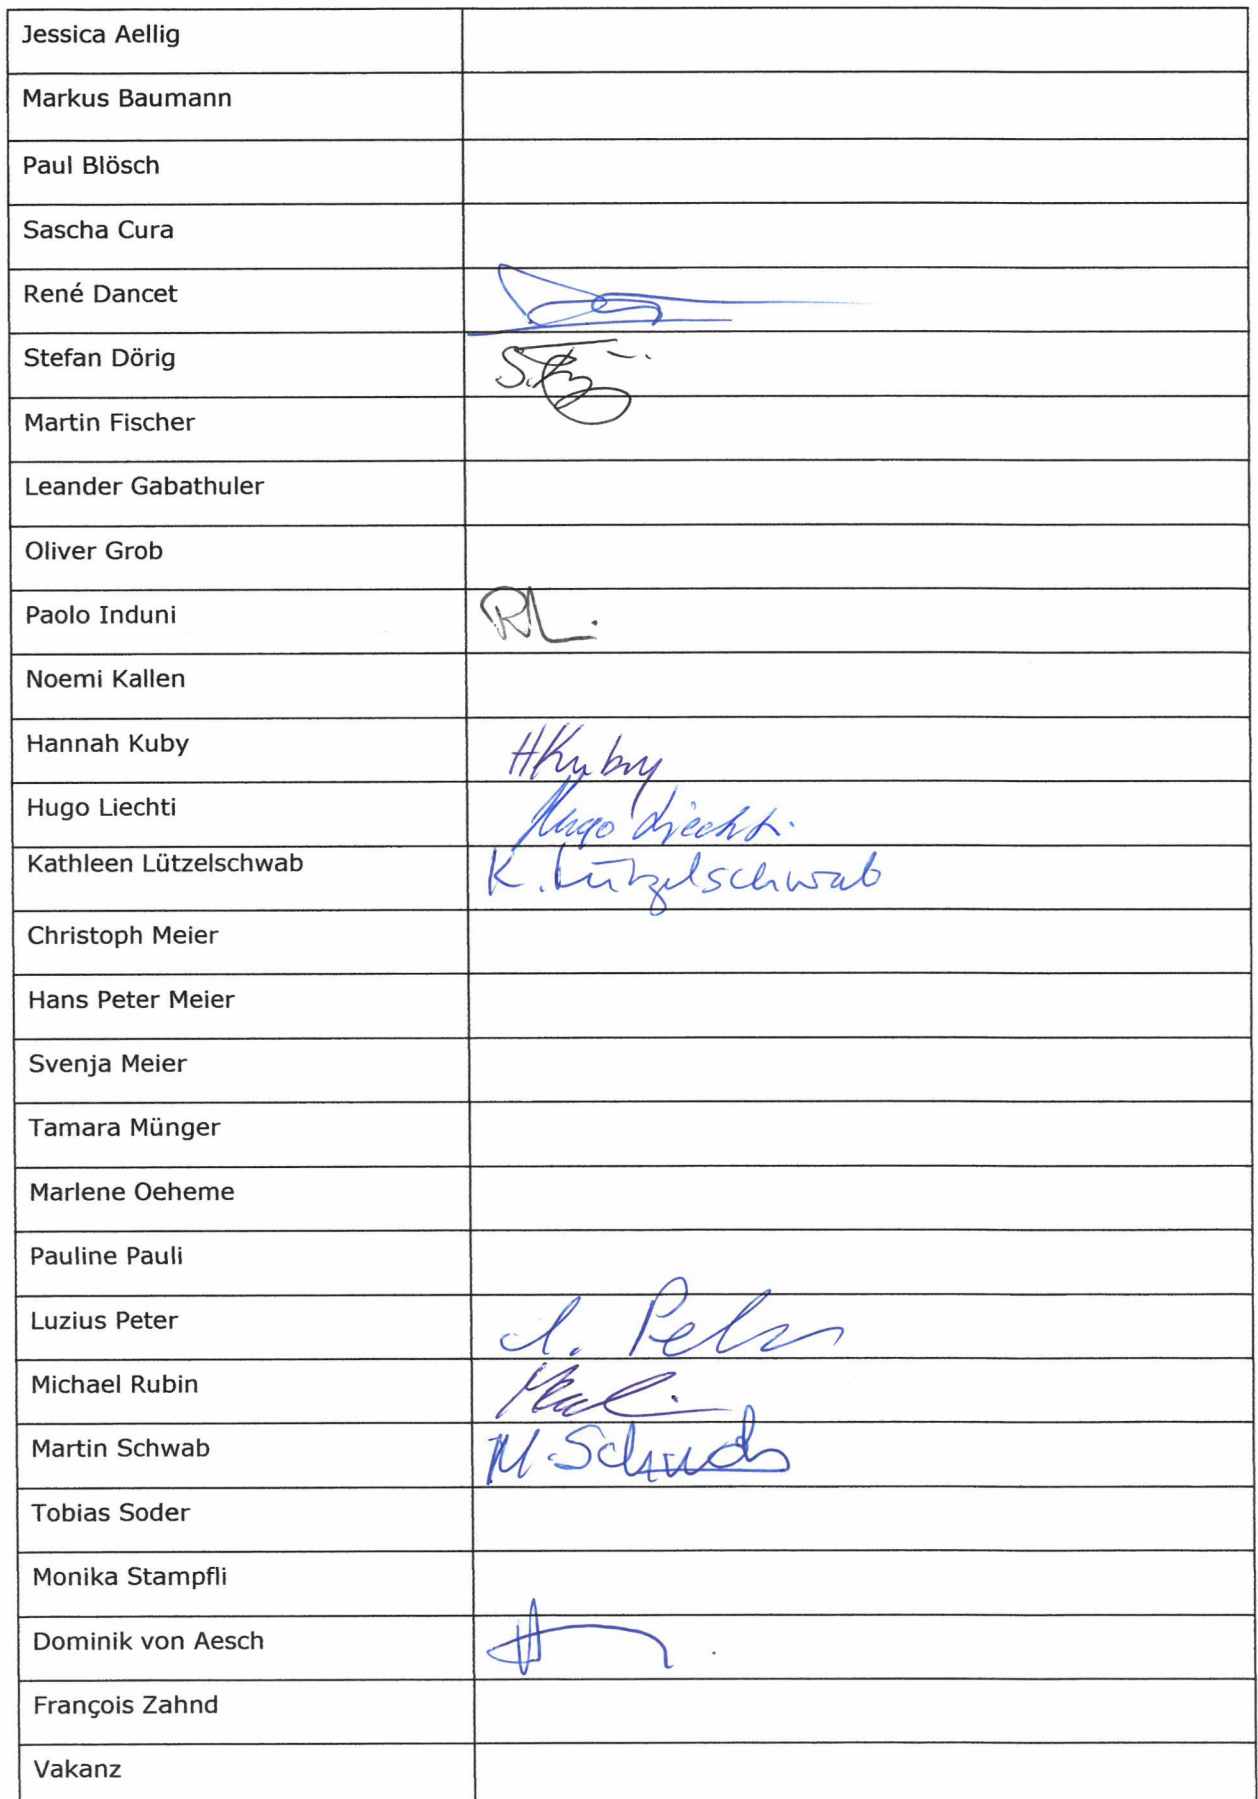 Jessica Aellig
Markus Baumann
Paul Blösch
Sascha Cura
René Dancet
Stefan Dörig
Martin Fischer
Leander Gabathuler
Oliver Grob
Paolo Induni
Noemi Kallen
Hannah Kuby HKuby
Hugo Liechti Hugo Liechti
Kathleen Lützelschwab K. Lützelschwab
Christoph Meier
Hans Peter Meier
Svenja Meier
Tamara Münger
Marlene Oeheme
Pauline Pauli
Luzius Peter L. Peter
Michael Rubin
Martin Schwab M. Schwab
Tobias Soder
Monika Stampfli
Dominik von Aesch
François Zahnd
Vakanz